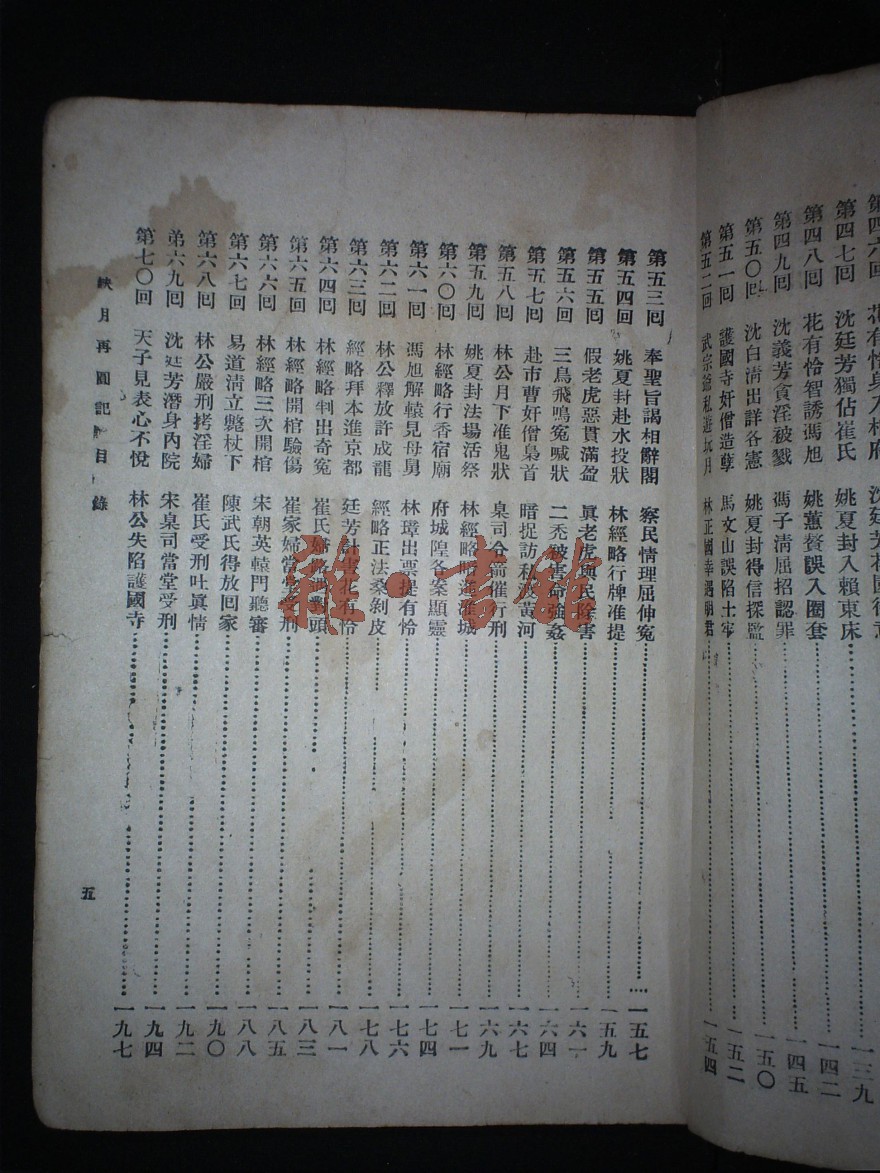 第四七囘 沈廷芳獨佔崔氏 姚夏封入賴東床 一四二
第四八囘 花有怜智誘馮旭 姚蕙贅誤入圈套
第四九囘 沈義芳貪淫被戮 馮子清屈招認罪 一四五
第五〇囘 沈白清出詳各憲 姚夏封得信探監 一五〇
第五一囘 護國寺奸僧造孽 馬文山誤陷土牢 一五二
第五二囘 武宗爺私遊玩月 林正國寺遇明君 一五四
第五三囘 奉聖旨謁相辭閣 察民情理屈伸冤 一五七
第五四囘 姚夏封赴水投狀 林經略行牌准提 一五九
第五五囘 假老虎惡貫滿盈 眞老虎與民除害 一六一
第五六囘 三鳥飛鳴冤喊狀 二禿被害命強姦 一六四
第五七囘 赴市曹奸僧梟首 暗捉訪私放黃河 一六七
第五八囘 林公月下准鬼狀 臬司令箭催行刑 一六九
第五九囘 姚夏封法場活祭 林經略 淮城 一七一
第六〇囘 林經略行香宿廟 府城隍各案顯靈 一七四
第六一囘 馮旭解轅見母舅 林璋出票提有怜 一七六
第六二囘 林公釋放許成龍 經略正法桑剝皮 一七八
第六三囘 經略拜本進京都 廷芳計 有怜 一八一
第六四囘 林經略判出奇冤 崔氏婦 對頭 一八三
第六五囘 林經略開棺驗傷 崔家婦當堂受刑 一八五
第六六囘 林經略三次開棺 宋朝英轅門聽審 一八八
第六七囘 易道清立斃杖下 陳武氏得放回家 一九〇
第六八囘 林公嚴刑拷淫婦 崔氏受刑吐眞情 一九二
弟六九囘 沈廷芳潛身內院 宋臬司當堂受刑 一九四
第七〇囘 天子見表心不悅 林公失陷護國寺 一九七
映月再圓記 目錄
五
雜書館